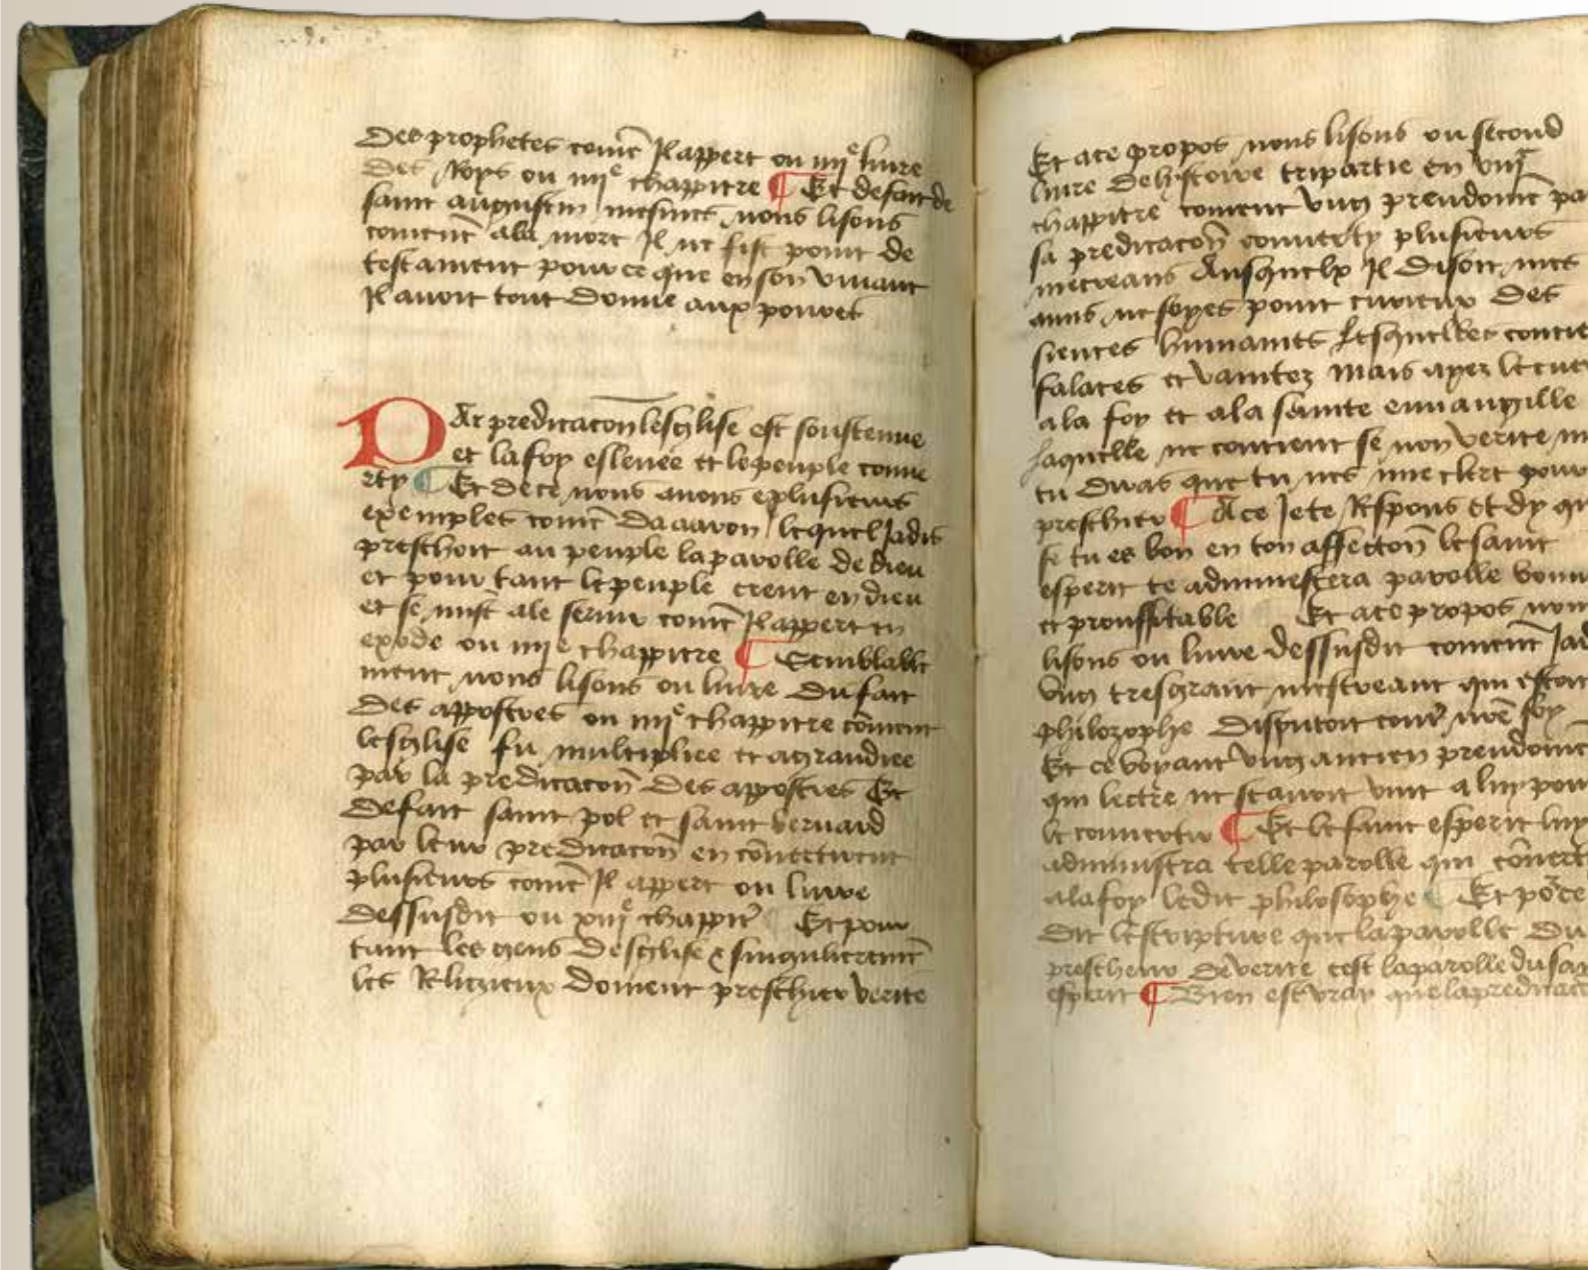 des prophetes com̃e Il appert ou iiij^e liure
des Roys ou iiij^e chappitre ¶ Et de fait de
saint augustin mesmes nous lisons
coment̃ ala mort Il ne fist point de
testament pour ce que en son viuant
Il auoit tout donne aux poures
PAr predicacon̄ lesglise est soustenue
et la foy esleuee et le peuple conue
rty ¶ Et de ce nous auons plusieurs
exemples com̃e daaaron lequel Jadis
preschoit au peuple la parolle de dieu
et pour tant le peuple creut en dieu
et se mist ale seruir com̃e Il appert en
exode ou iiij^e chappitre ¶ Semblable
ment nous lisons ou liure du fait
des appostres ou iiij^e chappitre cõment
lesglise fu multipliee et agrandiee
par la predicacon̄ des appostres Et
de fait saint pol et saint bernard
par leur predicacon̄ en cõuertirent
plusieurs com̃e Il appert ou liure
dessusdit ou xiij^e chappitr̃ Et pour
tant les gens desglise & singulierem̃t
les Religieux doiuent preschier verite
Et ace propos nous lisons ou second
liure de histoire tripartie en
chappitre coment vng preudom̃e pa
sa predicacon̄ conuerty plusieurs
mecreans Ausquelx Il disoit mes
amis ne soyes point curieux des
siences humaines Lesquelles contie
falaces et vanitez mais ayez le cuer
ala foy et ala sainte euuangille
laquelle ne contient se non verite
tu diras que tu nes mie clerc pour
preschier ¶ A ce Je te Respons et dy qu
se tu es bon en ton affection̄ le saint
esperit te administrera parolle bonn
et prouffitable Et ace propos nou
lisons ou liure dessusdit coment Jad
vng tresgrant mescreant qui estoit
philozophe disputoit contr̃ nr̃e foy
Et ce voyant vng ancien preudom̃e
qui lectre ne scauoit vint a luy pour
le conuertir ¶ Et le saint esperit luy
administra telle parolle qui cõuert
ala foy ledit philosophe ¶ Et pour ce
dit lescripture que la parolle du
prescheur de verite cest la parolle du sai
esperit ¶ Bien est vray que la predicac